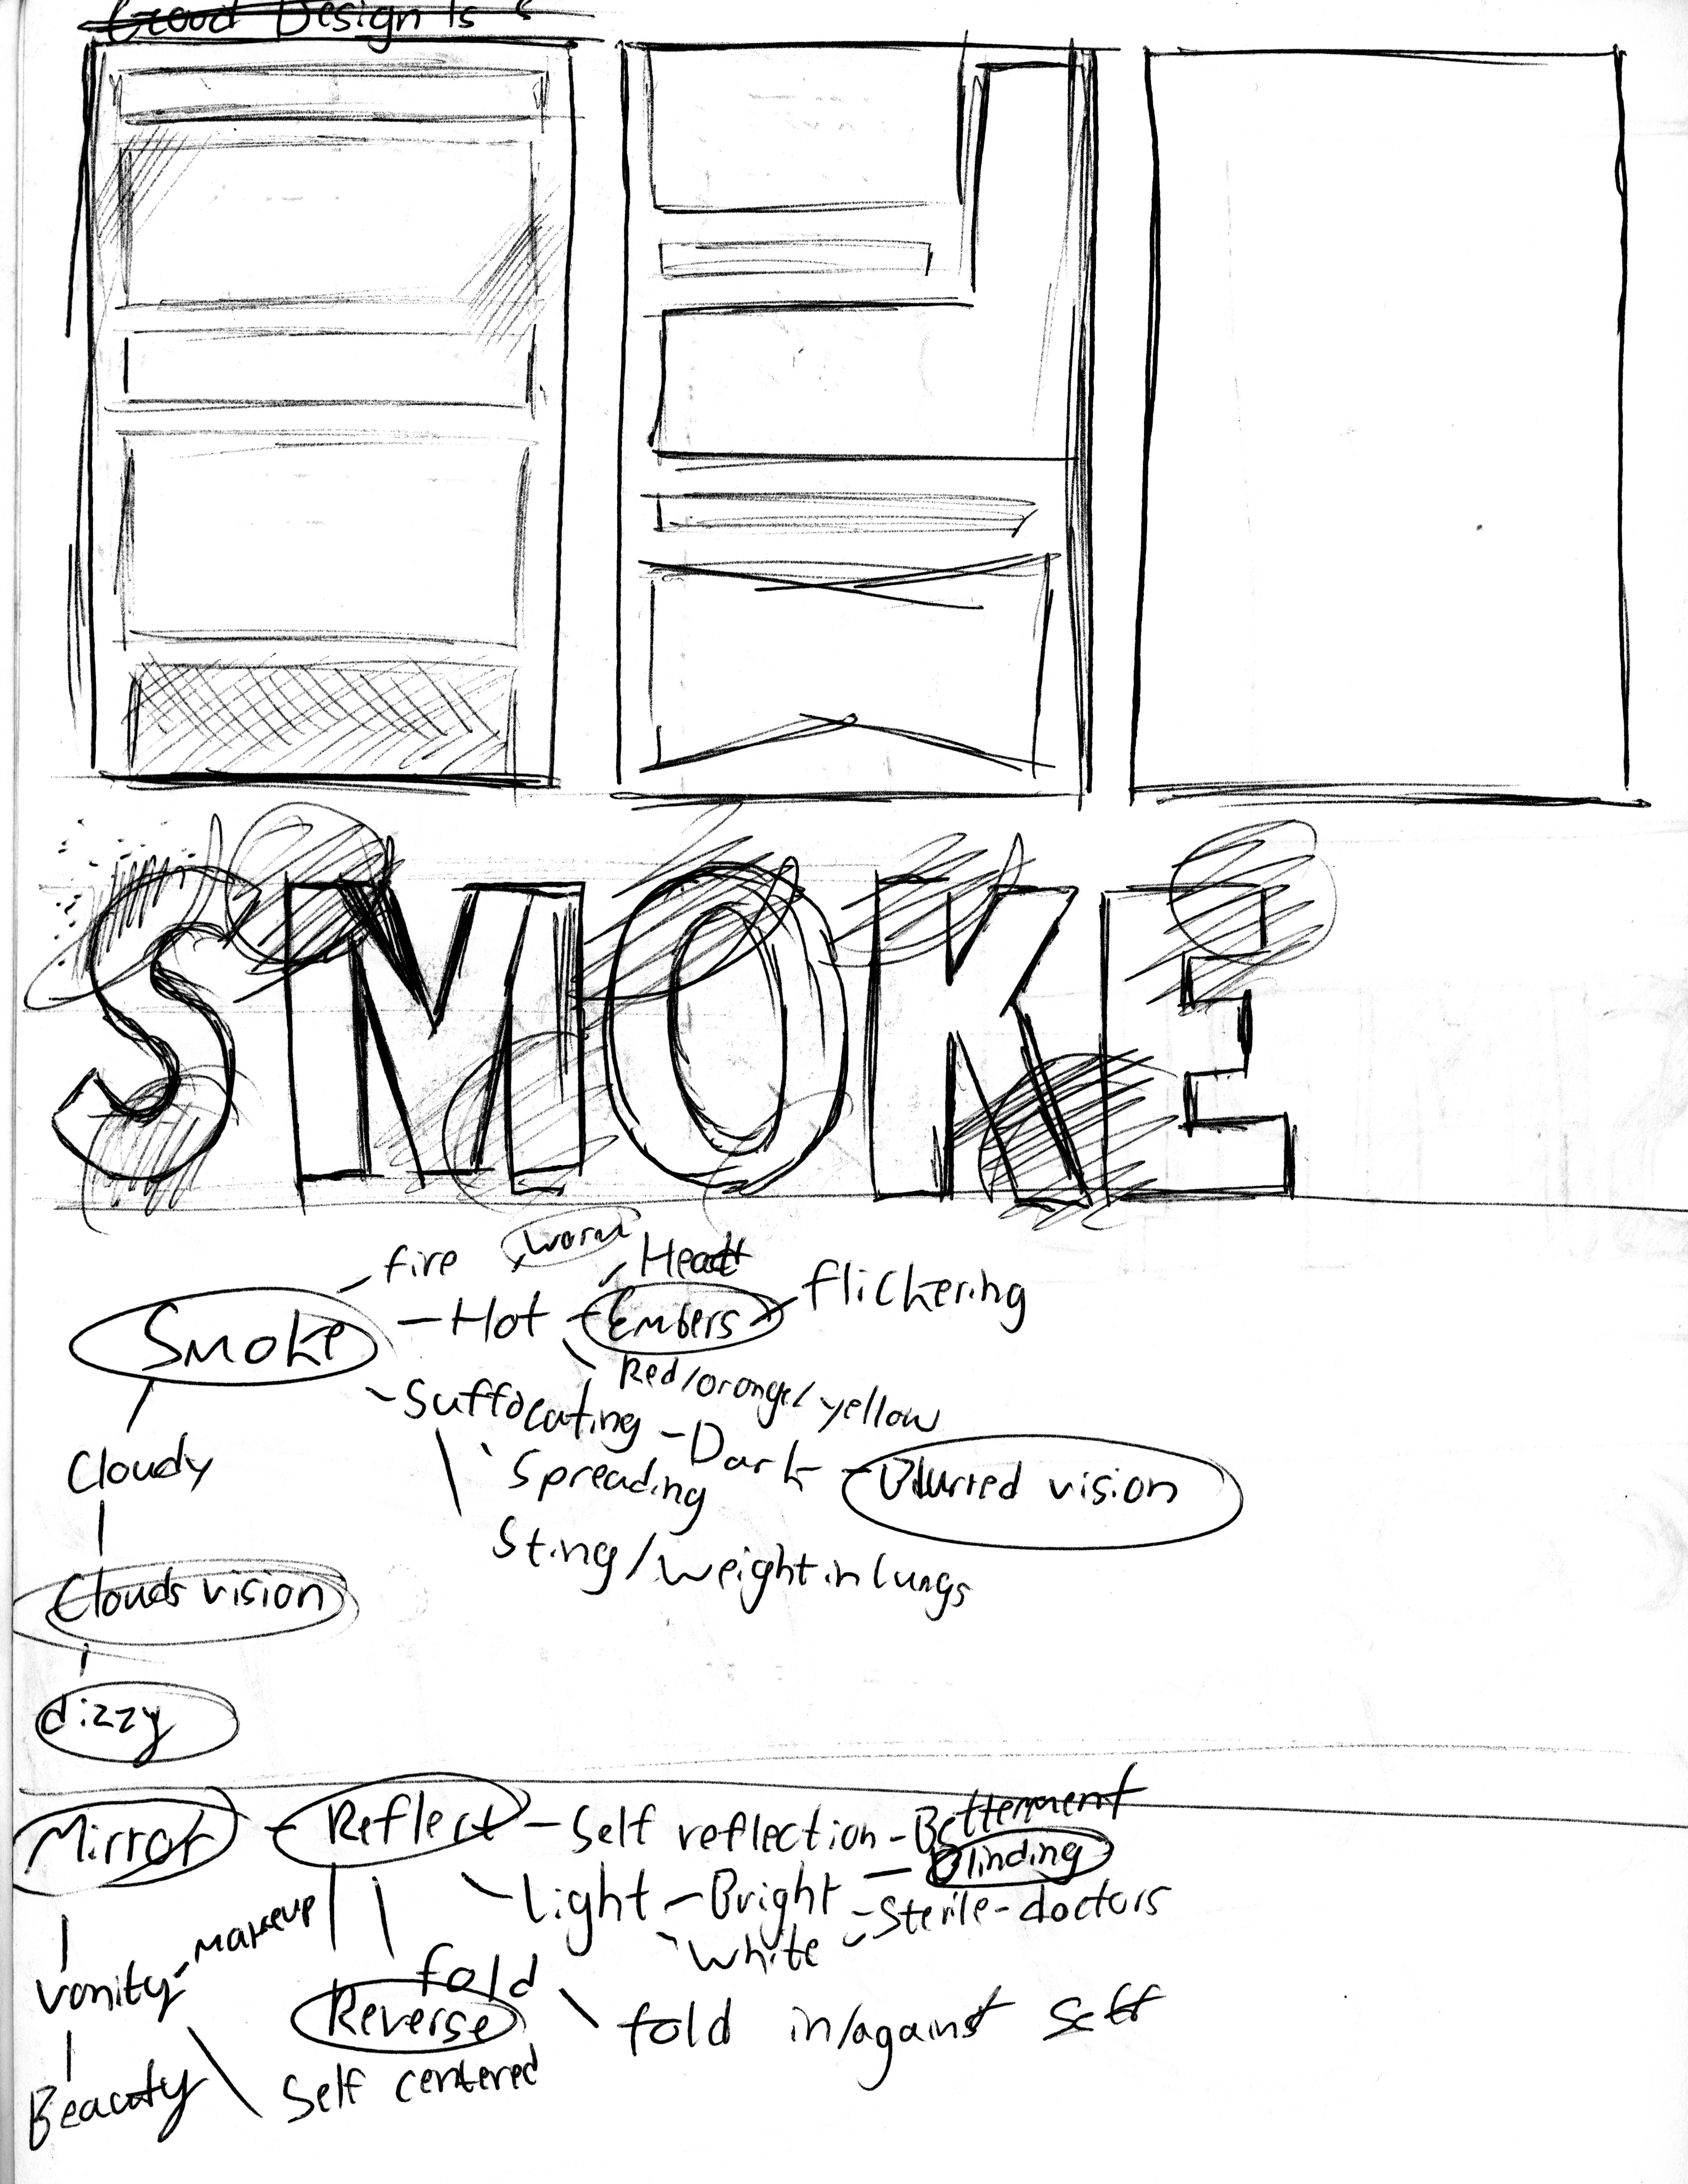 Good Design Is
SMOKE
fire
worm
Heat
Smoke
Hot
Embers
flickering
Red/orange/yellow
Suffocating
Dark
Blurred vision
Cloudy
Spreading
Sting/weight in lungs
Clouds vision
dizzy
Mirror
Reflect
Self reflection
Betterment
Light
Bright
Blinding
Sterile-doctors
White
makeup
Vanity
fold
Reverse
fold in/against self
Beauty
Self centered